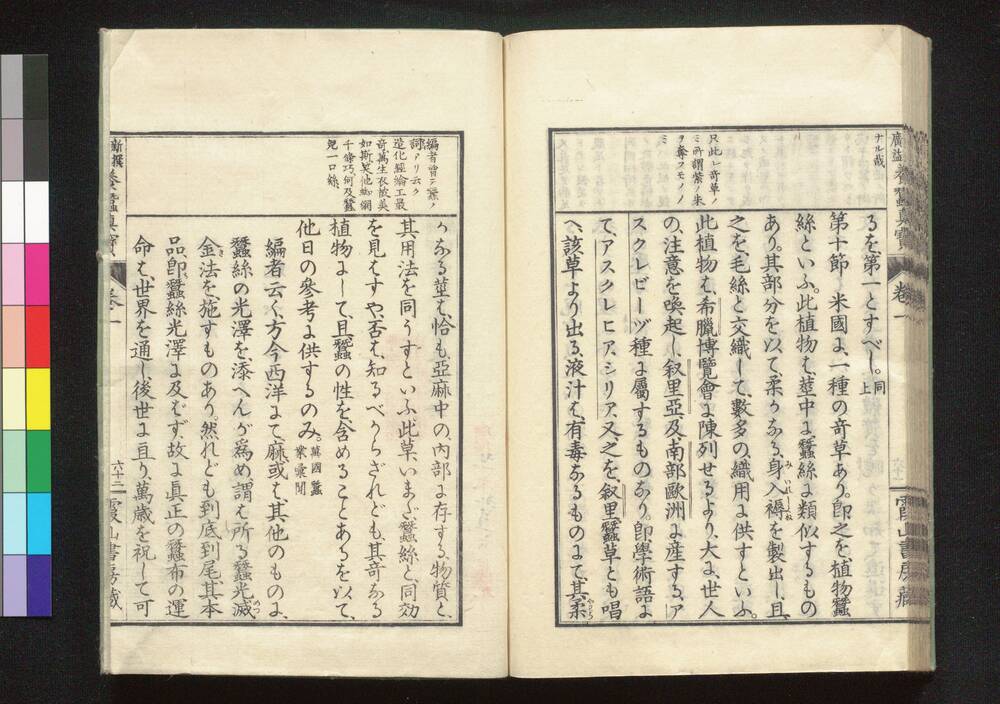 廣益養蠶眞寶
卷一
六十二
霞山書房藏
ナル哉
只此レ奇草ノ
ミ所謂紫ノ朱
ヲ奪フモノノ
ミ
るを第一とすべし。同上
第十節 米國よ、一種の奇草あり。即之を、植物蠶
絲といふ。此植物も、莖中よ蠶絲よ類似するもの
あり。其部分を以て、柔かなる、身入褥を製出し、且
之を、毛絲と交織して、數多の、織用よ供すといふ。
此植物も、希臘博覽會よ陳列せるより、大よ、世人
の、注意を喚起し、叙里亞、及南部歐洲よ産する、ア
スクレピーツ種よ屬するものなり。即學術語よ
て、アスクレヒア、シリア、又之を、叙里蠶草とも唱
へ、該草より出る、液汁も、有毒なるものよて、其柔
新撰養蠶眞寶
卷一
六十三
霞山書房藏
編者曾テ蠶ノ
詞アリ云ク
造化經綸工最
奇萬生衣被美
如斯
千條巧何及蠶
兒一口絲
かなる莖も、恰も、亞麻中の、内部よ存する、物質と、
其用法を同うすといふ此草、いまだ蠶絲と、同効
を見もすや、否も、知るべからざれども、其奇なる
植物よして、且、蠶の性を、含めることあるを以て、
他日の參考よ供するのみ。萬國蠶業彙聞
編者云く、方今西洋よて、麻、或も、其他のものよ、
蠶絲の光澤を、添へんが爲め、謂も所る蠶光滅
金法を、施すものあり。然れども、到底到尾、其本
品、即、蠶絲光澤よ及もず、故よ眞正の蠶布の運
命も、世界を通し、後世よ亘り、萬歳を祝して可